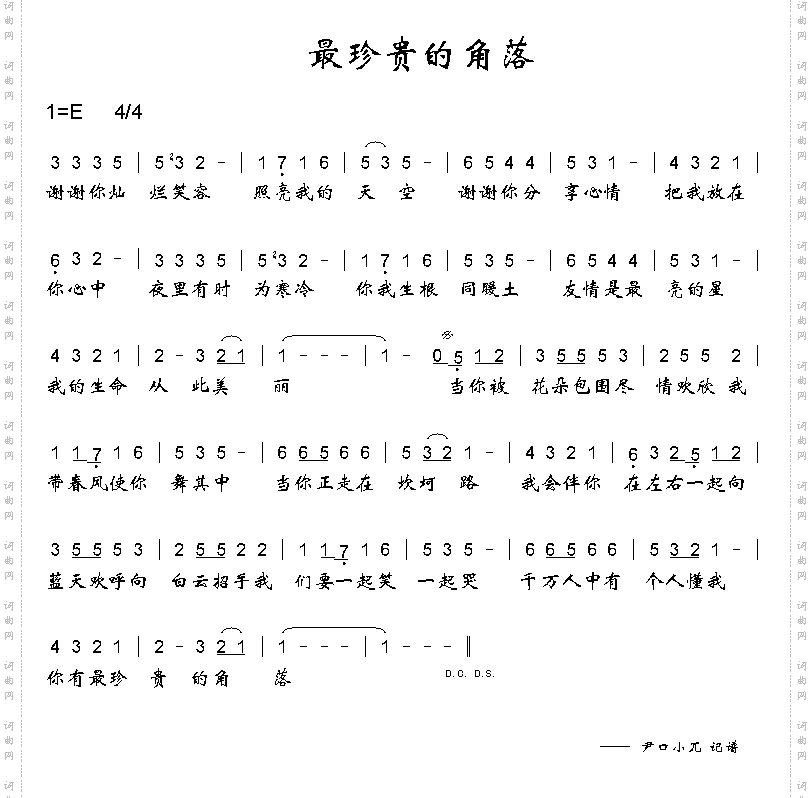 最珍贵的角落
1=E 4/4
3 3 3 5 | 5 4 3 2 - | 1 7 1 6 | 5 3 5 - | 6 5 4 4 | 5 3 1 - | 4 3 2 1 |
谢谢你灿 烂笑容 照亮我的 天 空 谢谢你分 享心情 把我放在
6 3 2 - | 3 3 3 5 | 5 4 3 2 - | 1 7 1 6 | 5 3 5 - | 6 5 4 4 | 5 3 1 - |
你心中 夜里有时 为寒冷 你我生根 同暖土 友情是最 亮的星
4 3 2 1 | 2 - 3 2 1 | 1 - - - | 1 - 0 5 1 2 | 3 5 5 5 3 | 2 5 5 2 |
我的生命 从 此美 丽 当你被 花朵包围尽 情欢欣 我
1 1 7 1 6 | 5 3 5 - | 6 6 5 6 6 | 5 3 2 1 - | 4 3 2 1 | 6 3 2 5 1 2 |
带春风使你 舞其中 当你正走在 坎坷 路 我会伴你 在左右一起向
3 5 5 5 3 | 2 5 5 2 2 | 1 1 7 1 6 | 5 3 5 - | 6 6 5 6 6 | 5 3 2 1 - |
蓝天欢呼向 白云招手我 们要一起笑 一起哭 千万人中有 个人懂我
4 3 2 1 | 2 - 3 2 1 | 1 - - - | 1 - - - ‖
你有最珍 贵 的角 落 D.C. D.S.
—— 尹口小兀 记谱
词曲网